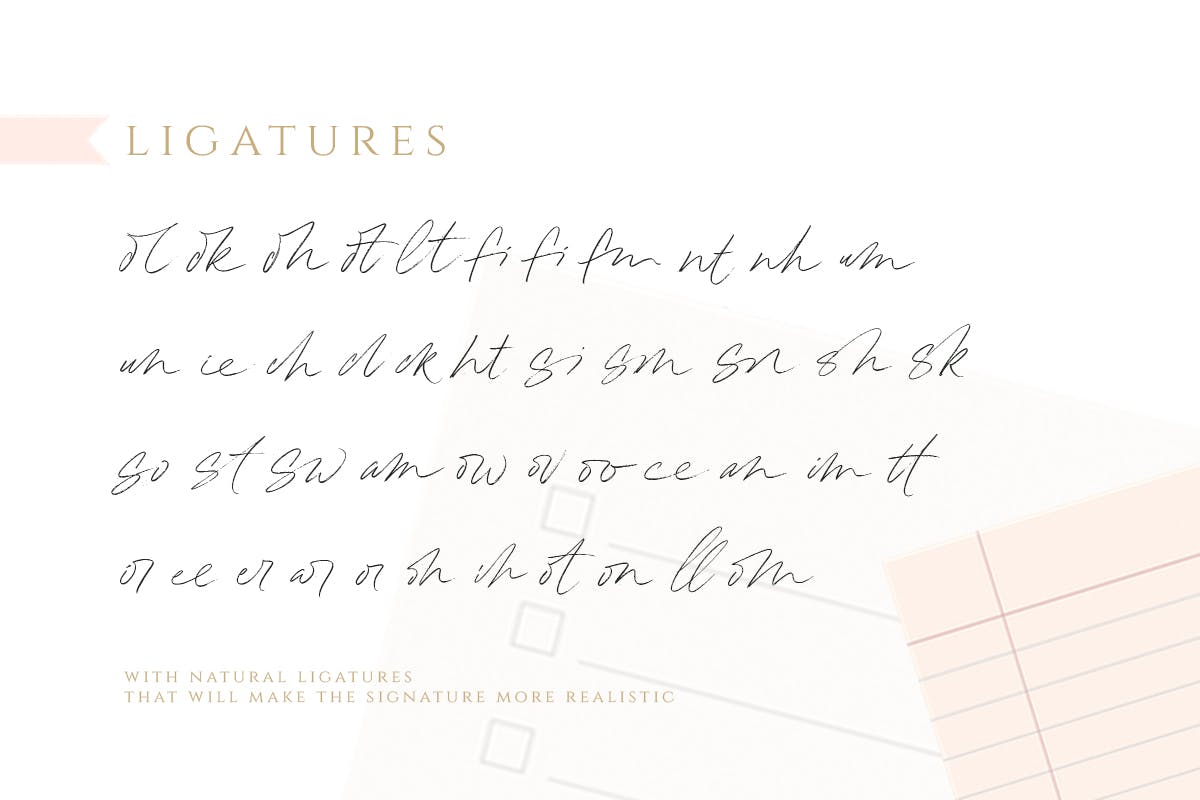 LIGATURES
ol ok oh ot lt fi fi fm nt nh um
un ie ch cl ck ht si sm sn sh sk
so st sw am ow ov oo ce an im tt
or ee er ar or oh ih ot on ll om
WITH NATURAL LIGATURES
THAT WILL MAKE THE SIGNATURE MORE REALISTIC